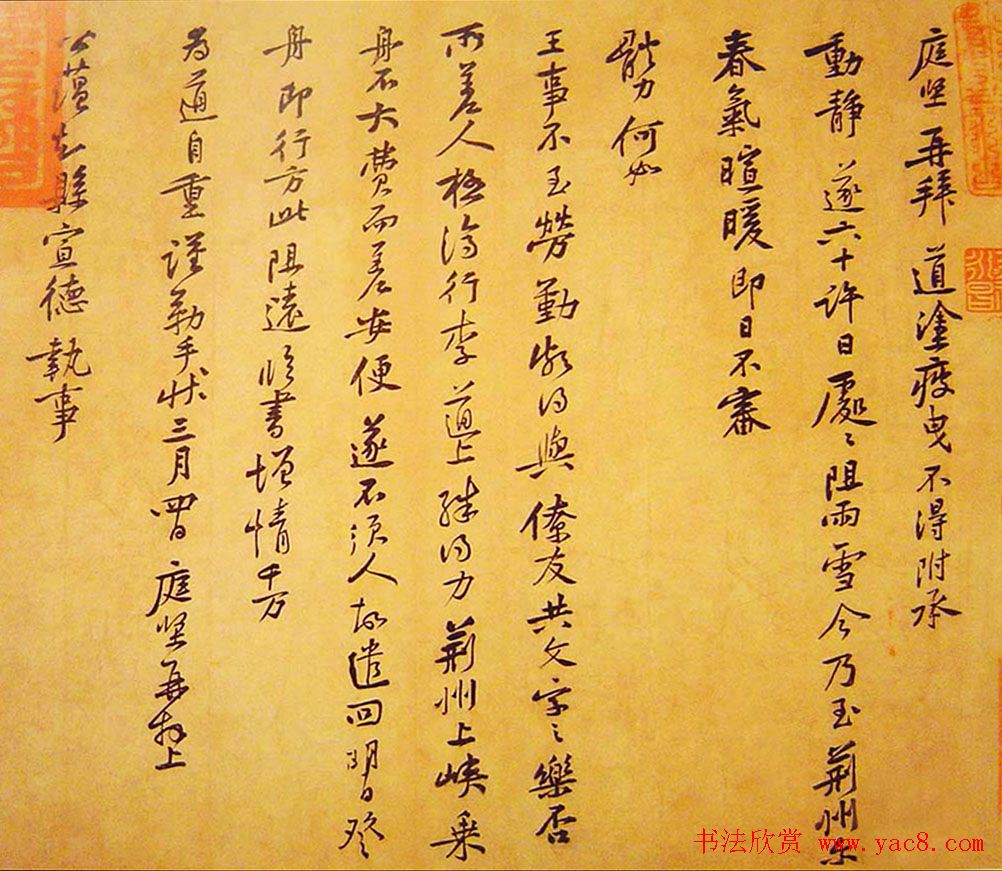 庭坚再拜 道塗疲曳 不得附承
動靜 遂六十許日 處〻阻雨雪 今乃至荊州 尓
春氣暄暖 即日不審
體力何如
王事不至勞勤 頗得與僚友共文字之樂否
所差人極濟行李 道上殊得力 荊州上峽乘
舟不大費而差安便 遂不須人 故遣回 明日登
舟即行 方此阻遠 臨書增情 千万
為道自重 謹勒手狀 三月四日 庭坚再拜上
公蘊知縣宣德 執事
书法欣赏 www.yac8.com